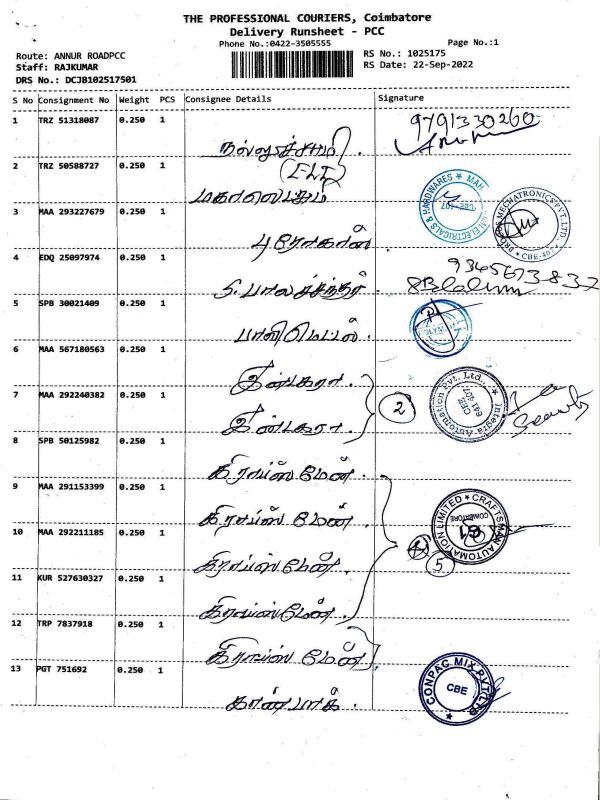 THE PROFESSIONAL COURIERS, Coimbatore
Delivery Runsheet - PCC
Phone No.:0422-3505555
Page No.:1
Route: ANNUR ROADPCC
RS No.: 1025175
Staff: RAJKUMAR
RS Date: 22-Sep-2022
DRS No.: DCJB102517501
S No Consignment No Weight PCS Consignee Details Signature
1 TRZ 51318087 0.250 1
9791330260
நல்லுச்சாமி
2 TRZ 50588727 0.250 1
மகாலெட்சுமி
HARDWARES ★ MAH
ELECTRICALS &
MECHATRONICS PVT. LTD
CBE-407
3 MAA 293227679 0.250 1
புரோகாஸ்
4 EDQ 25097974 0.250 1
9345673832
S. பாலச்சந்தர்
5 SPB 30021409 0.250 1
பானிமெட்டல்
6 MAA 567180563 0.250 1
இன்டகரா
7 MAA 292240382 0.250 1
2
Integra Automation Pvt. Ltd.,
CBE
641 407
இன்டகரா
8 SPB 50125982 0.250 1
கிராப்ஸ் மேன்
9 MAA 291153399 0.250 1
கிராப்ஸ் மேன்
CRAFTSMAN AUTOMATION LIMITED ★
COIMBATORE
61
10 MAA 292211185 0.250 1
கிராப்ஸ் மேன்
5
11 KUR 527630327 0.250 1
கிராப்ஸ் மேன்
12 TRP 7837918 0.250 1
கிராப்ஸ் மேன்
13 PGT 751692 0.250 1
CONPAC MIX PVT LTD
CBE
கான்பாக்